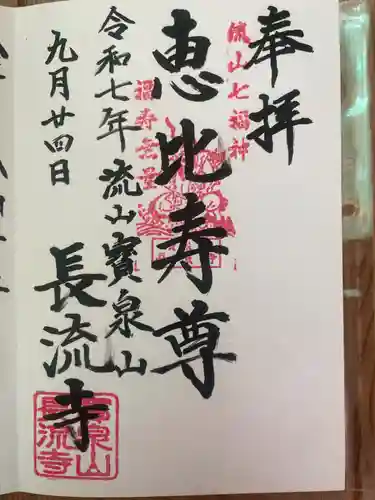 奉拝
流山七福神
恵比寿尊
福寿無量
令和七年流山寳泉山
九月廿四日
長流寺
寳泉山
長流寺